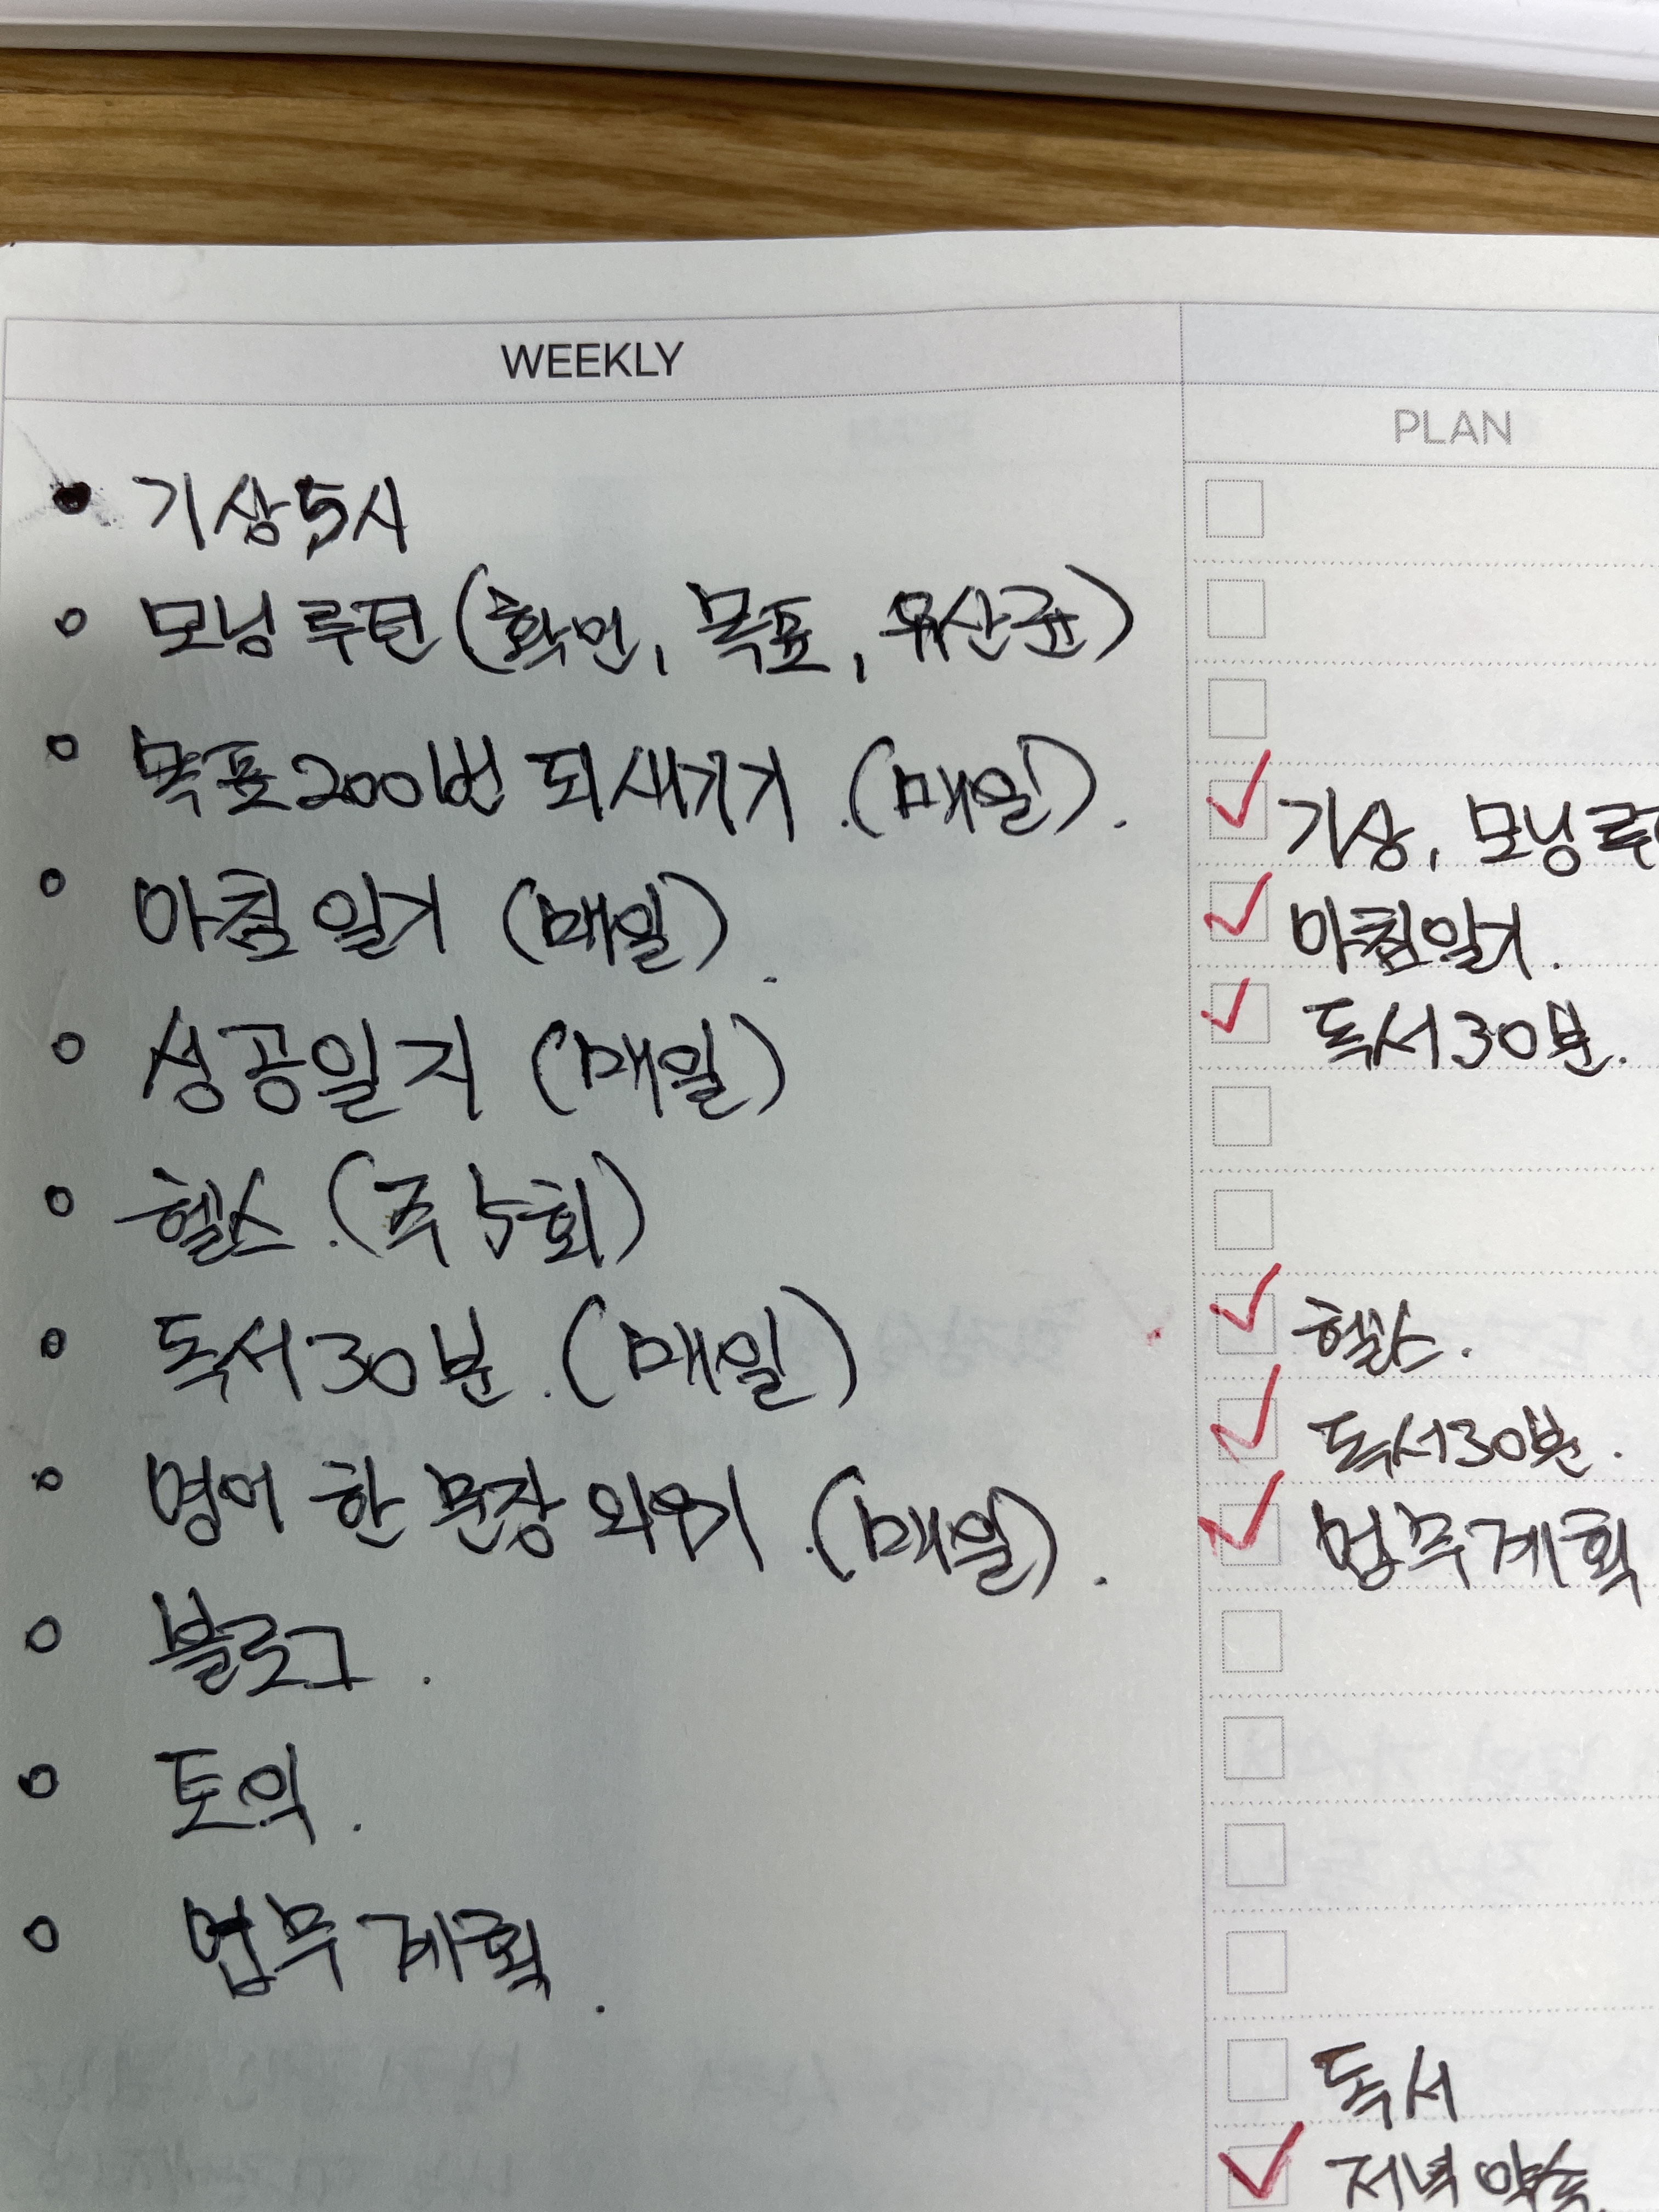 WEEKLY
• 기상5시
◦ 모닝루틴(확언, 목표, 유산균)
◦ 목표200번 되새기기.(매일).
◦ 아침일기 (매일).
◦ 성공일지 (매일)
◦ 헬스.(주5회)
◦ 독서30분.(매일)
◦ 영어 한 문장 외우기.(매일).
◦ 블로그.
◦ 토익.
◦ 업무계획.
PLAN
기상, 모닝루
아침일기.
독서30분.
헬스.
독서30분.
업무계획
독서
저녁약속